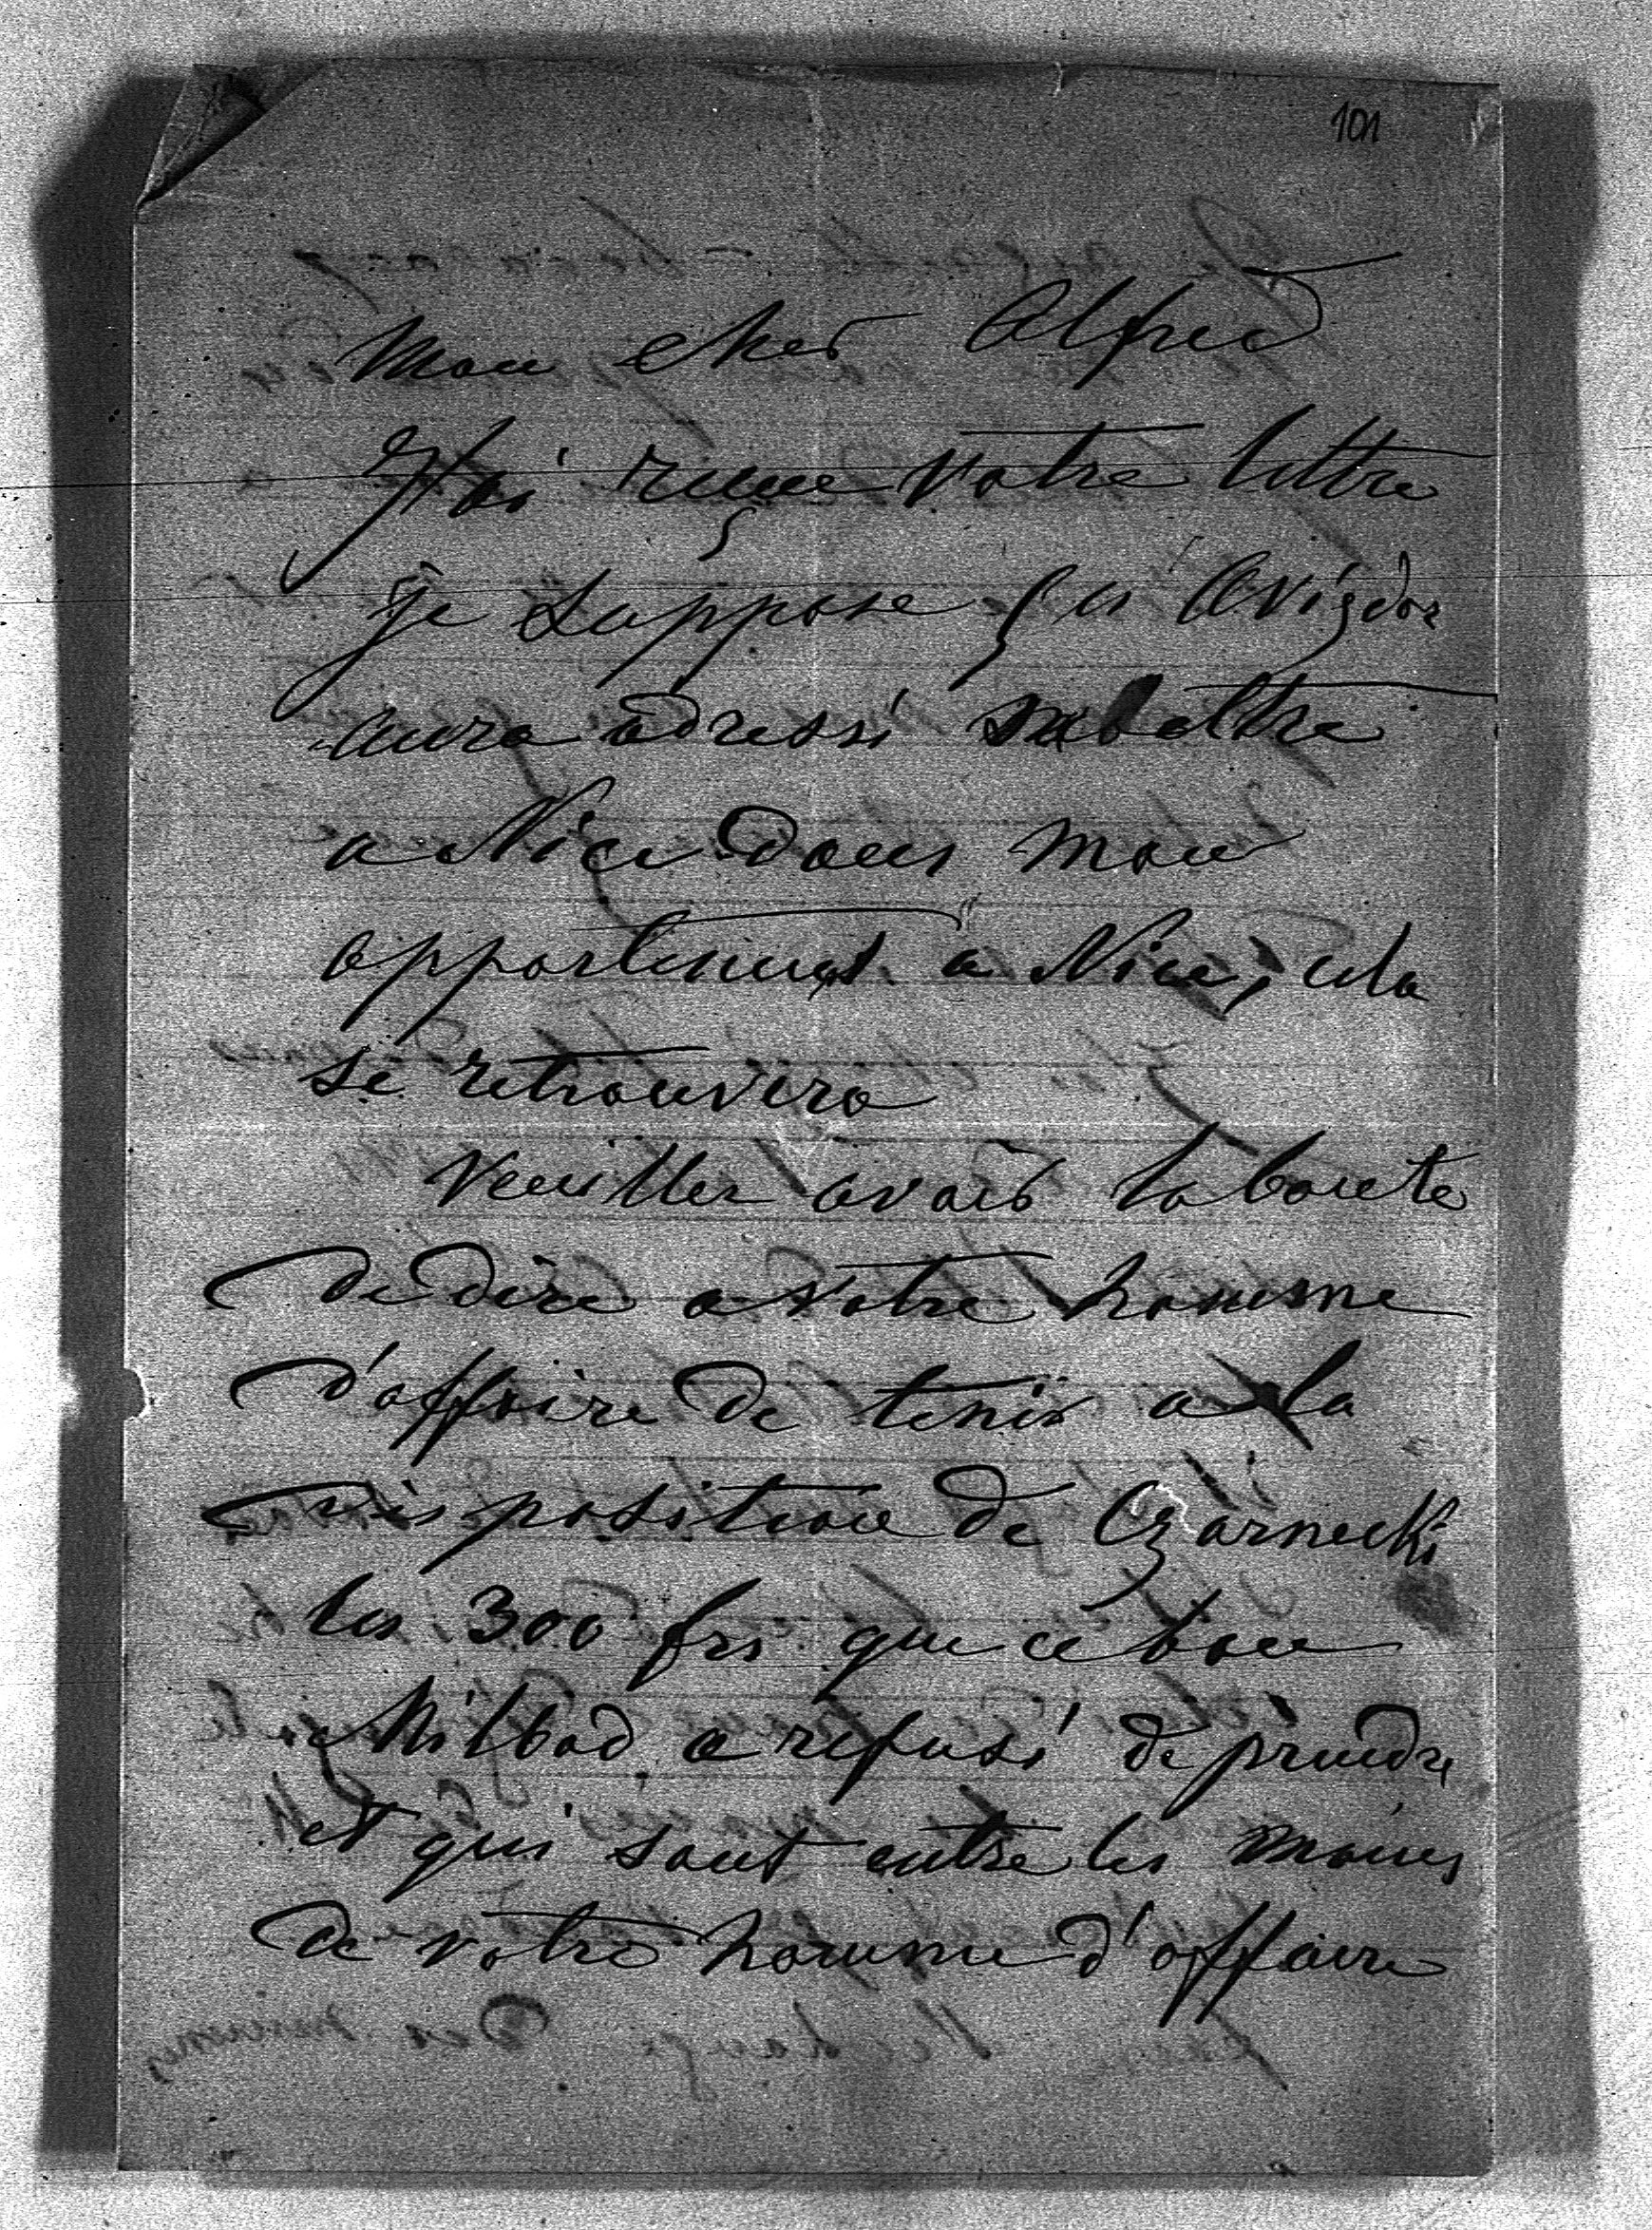 101
Mon cher Alfred
J'ai reçue votre lettre
je suppose qu'Avigdor
aura adressé sa lettre
a Nice dans mon
appartement a Nice, cela
se retrouvera
Veuillez avoir la bonte
de dire a votre homme
d'affaire de tenir a la
disposition de Czarnecki
les 300 frs que ce bon
Milbad a refusé de prendre
et qui sont entre les mains
de votre homme d'affaire